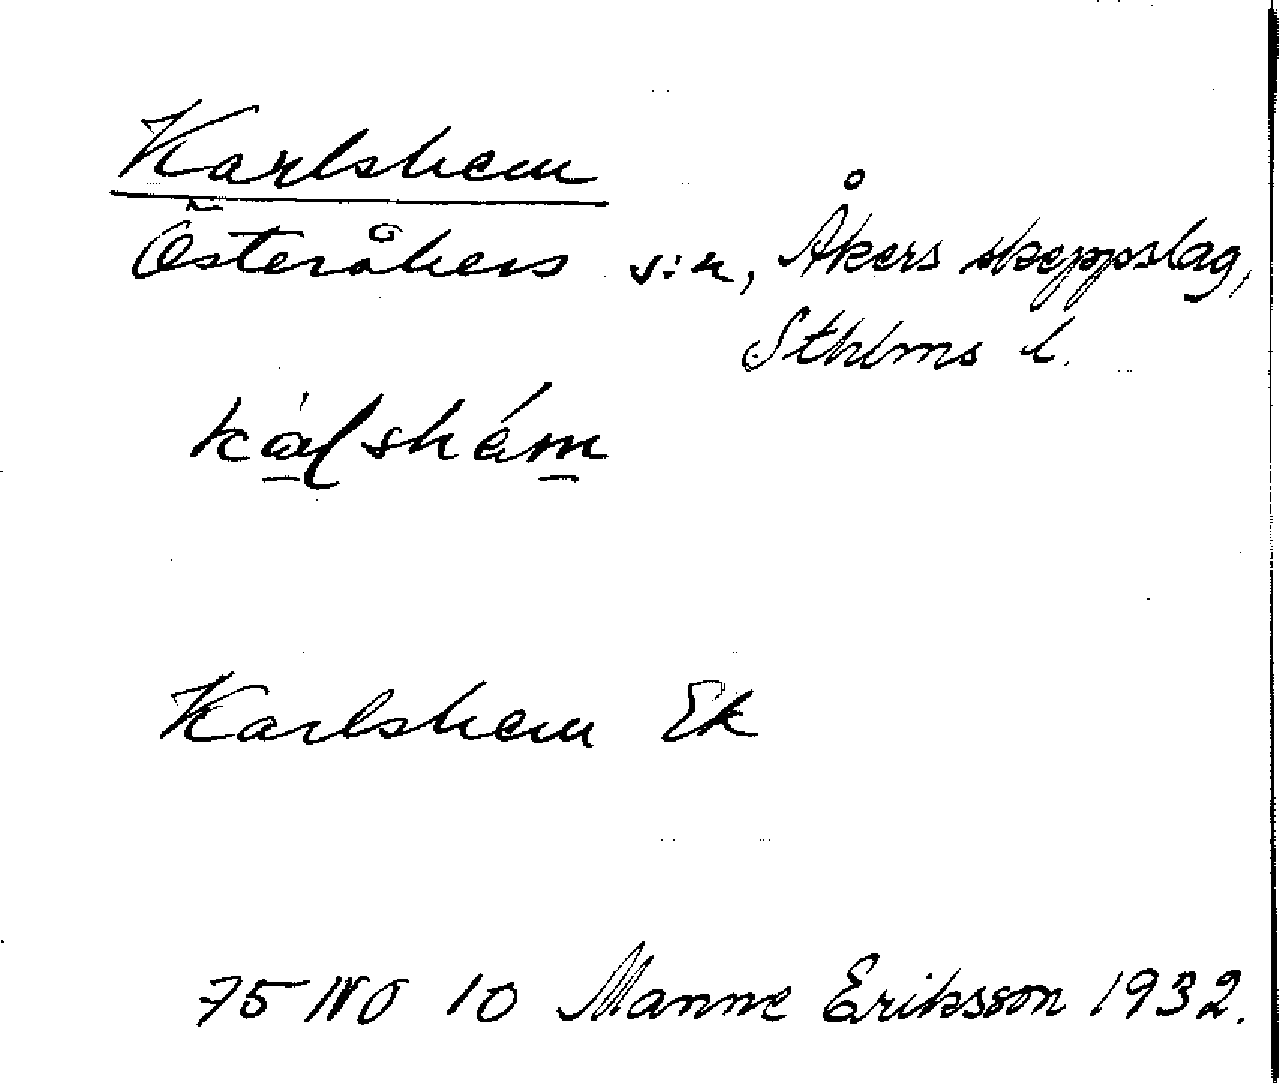 Karlshem
Österåkers s:n, Åkers skeppslag,
Sthlms l.
kàlshém
Karlshem Ek
75 NO 10 Manne Eriksson 1932.